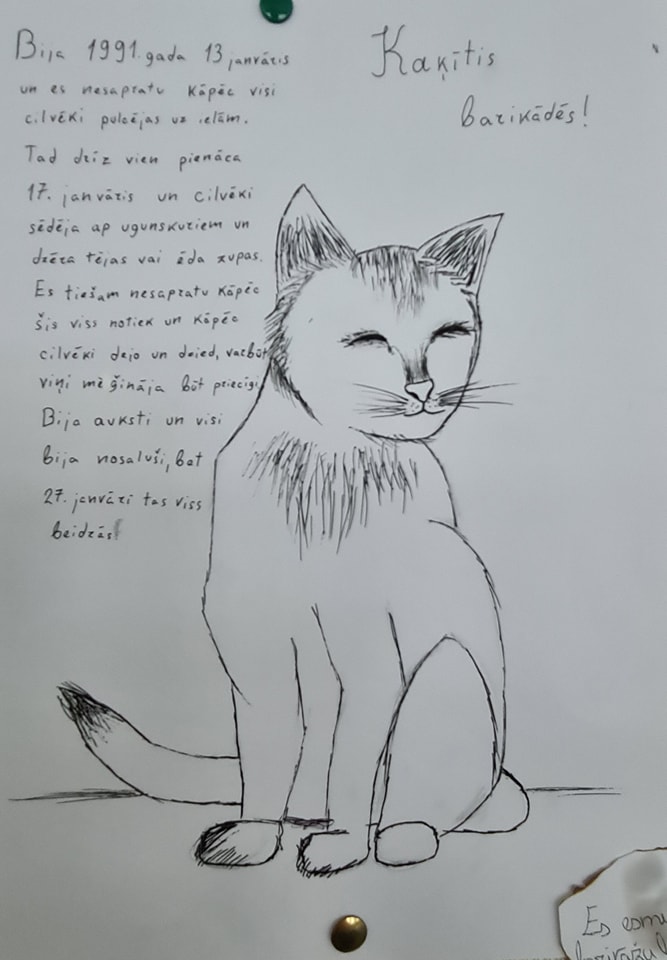 Bija 1991. gada 13 janvāris
un es nesapratu kāpēc visi
cilvēki pulcējas uz ielām.
Tad drīz vien pienāca
17. janvāris un cilvēki
sēdēja ap ugunskuriem un
dzēra tējas vai ēda zupas.
Es tiešam nesapratu kāpēc
šis viss notiek un kāpēc
cilvēki dejo un dzied, varbūt
viņi mēģināja būt priecīgi.
Bija auksti un visi
bija nosaluši, bet
27. janvāri tas viss
beidzās!
Kaķītis
barikādēs!
Es esmu